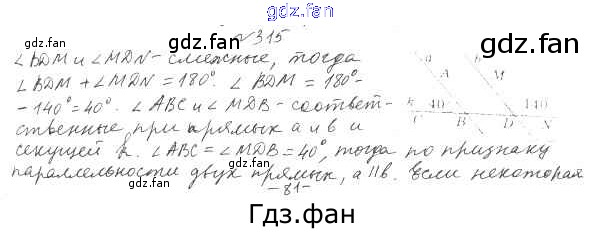 gdz.fan
№315
gdz.fan gdz.fan
∠BDM и ∠MDN - смежные, тогда
∠BDM + ∠MDN = 180°. ∠BDM = 180°-
- 140° = 40°. ∠ABC и ∠MDB - соответ-
ственные при прямых a и b и
секущей k. ∠ABC = ∠MDB = 40°, тогда по признаку
параллельности двух прямых, a || b. Если некоторая
a b A M
k 40 140
C B D N
gdz.fan gdz.fan
gdz.fan gdz.fan
-81-
Гдз.фан